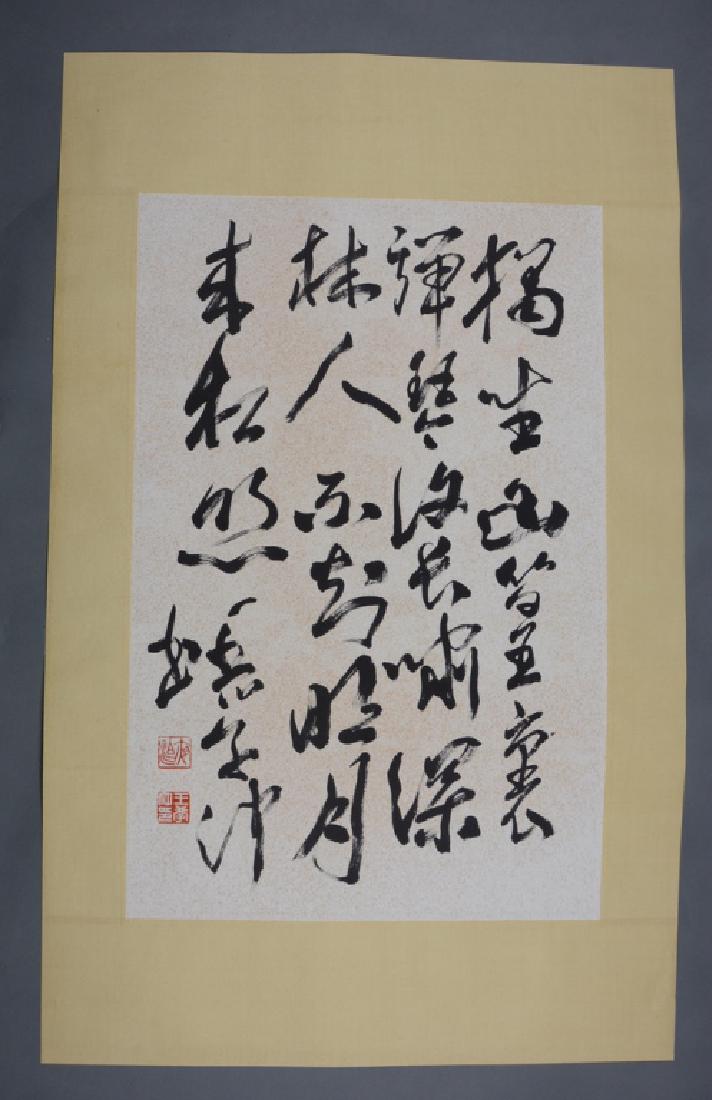 獨坐幽篁裏
彈琴復長嘯深
林人不知明月
来相照
书